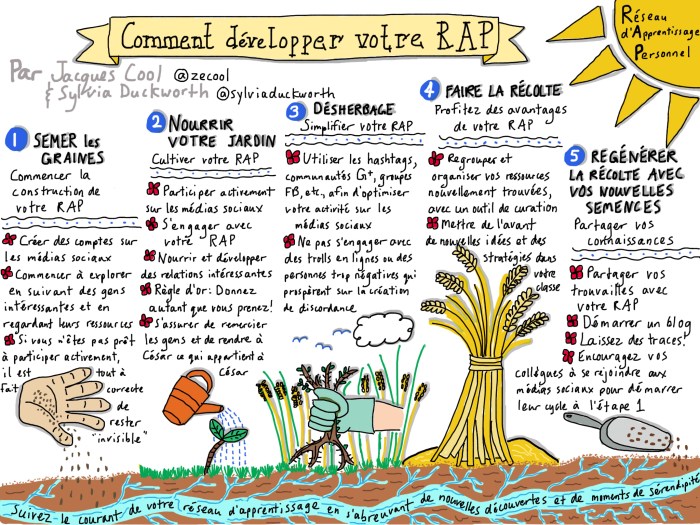 Comment développer votre RAP
Réseau
d'Apprentissage
Personnel
Par Jacques Cool @zecool
& Sylvia Duckworth @sylviaduckworth
1 SEMER les
GRAINES
Commencer la
construction de
votre RAP
Créer des comptes sur
les médias sociaux
Commencer à explorer
en suivant des gens
intéressants et en
regardant leurs ressources
Si vous n'êtes pas prêt
à participer activement,
il est tout à
fait correcte
de
rester
"invisible"
2 NOURRIR
VOTRE JARDIN
Cultiver votre RAP
Participer activement
sur les médias sociaux
S'engager avec
votre RAP
Nourrir et développer
des relations intéressantes
Règle d'or: Donnez
autant que vous prenez!
S'assurer de remercier
les gens et de rendre à
César ce qui appartient à
César
3 DÉSHERBAGE
Simplifier votre RAP
Utiliser les hashtags,
communautés G+, groupes
FB, etc, afin d'optimiser
votre activité sur les
médias sociaux
Ne pas s'engager avec
des trolls en lignes ou des
personnes trop négatives qui
prospèrent sur la création
de discordance
4 FAIRE LA RÉCOLTE
Profitez des avantages
de votre RAP
Regrouper et
organiser vos ressources
nouvellement trouvées,
avec un outil de curation
Mettre de l'avant
de nouvelles idées et des
stratégies dans
votre
classe
5 REGÉNÉRER
LA RÉCOLTE AVEC
VOS NOUVELLES
SEMENCES
Partager vos
connaissances
Partager vos
trouvailles avec
votre RAP
Démarrer un blog
Laissez des traces!
Encouragez vos
collègues à se rejoindre aux
médias sociaux pour démarrer
leur cycle à l'étape 1
Suivez le courant de votre réseau d'apprentissage en s'abreuvant de nouvelles découvertes et de moments de sérendipité